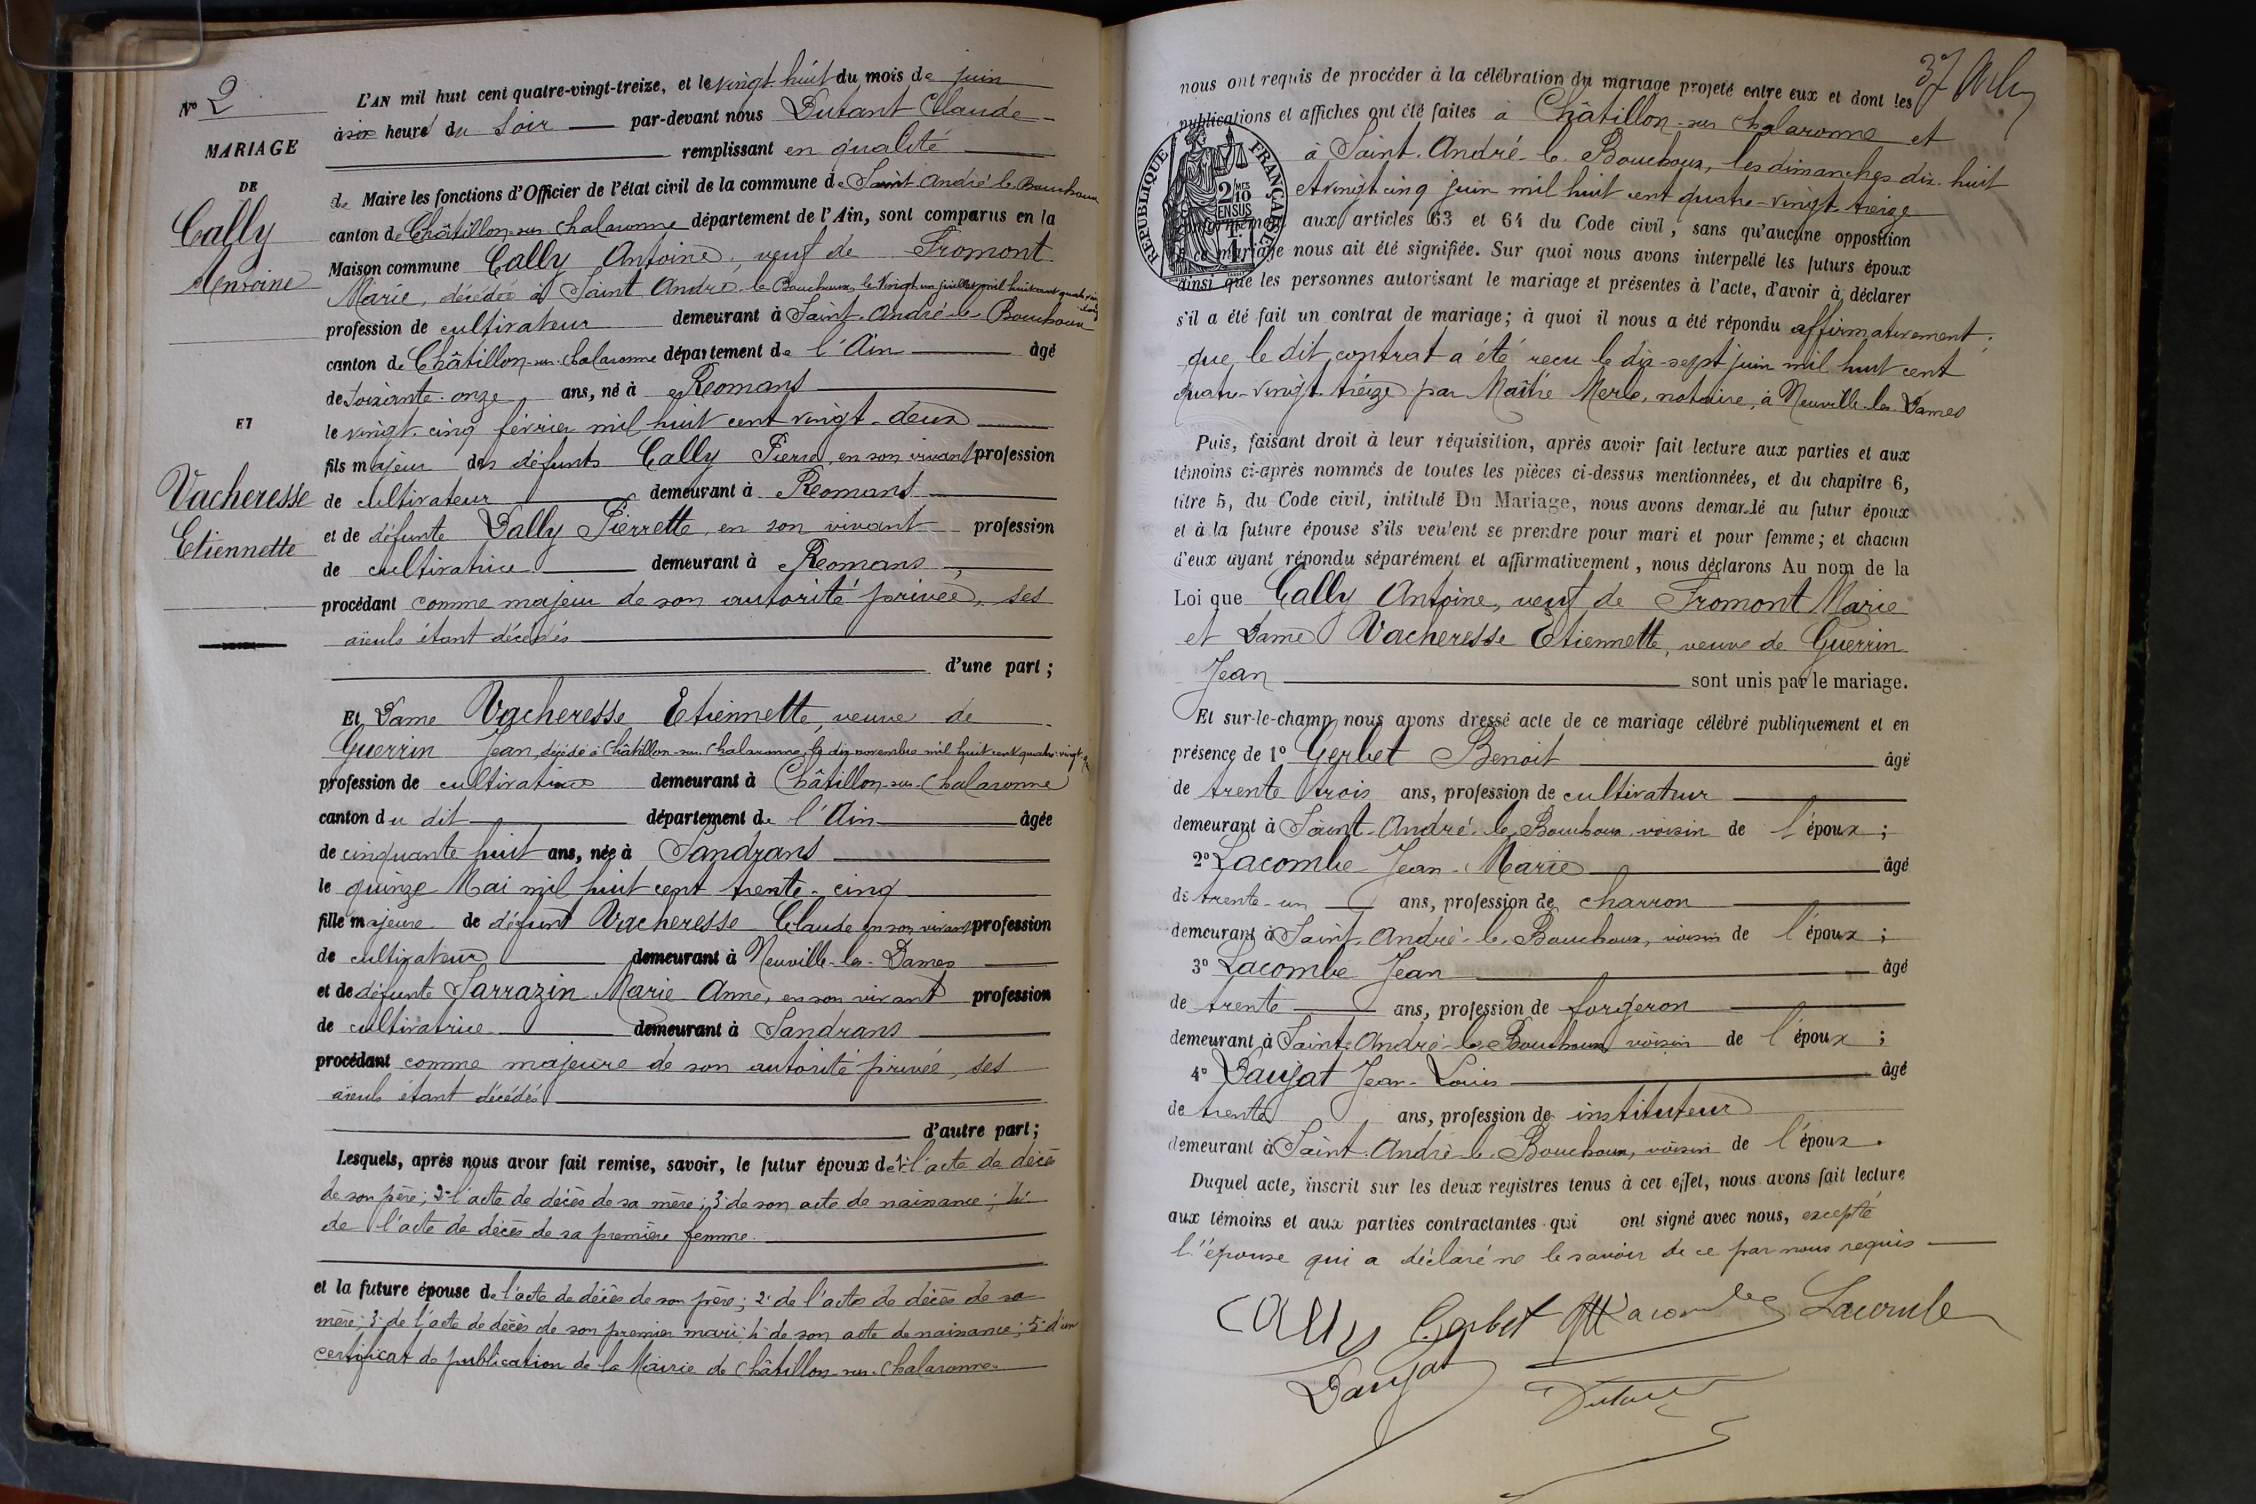 No 2
MARIAGE
DE
Cally
Antoine
ET
Vacheresse
Etiennette
L'AN mil huit cent quatre-vingt-treize, et le vingt-huit du mois de juin
à six heures du Soir par-devant nous Dutant Claude
remplissant en qualité
de Maire les fonctions d'Officier de l'état civil de la commune de Saint André le Bouchoux
canton de Châtillon-sur-Chalaronne département de l'Ain, sont comparus en la
Maison commune Cally Antoine, veuf de Fromont
Marie, décédée à Saint André-le-Bouchoux, le vingt un juillet mil huit cent quatre vingt
profession de cultivateur demeurant à Saint-André-le-Bouchoux
canton de Châtillon-sur-Chalaronne département de l'Ain âgé
de soixante-onze ans, né à Romans
le vingt-cinq février mil huit cent vingt-deux
fils majeur des défunts Cally Pierre, en son vivant profession
de cultivateur demeurant à Romans
et de défunte Dally Pierrette, en son vivant profession
de cultivatrice demeurant à Romans,
procédant comme majeur de son autorité privée, ses
aïeuls étant décédés
d'une part;
Et Dame Vacheresse Etiennette, veuve de
Guerrin Jean, décédé à Châtillon-sur-Chalaronne, le dix novembre mil huit cent quatre-vingt
profession de cultivatrice demeurant à Châtillon-sur-Chalaronne
canton du dit département de l'Ain âgée
de cinquante huit ans, née à Sandrans
le quinze Mai mil huit cent trente-cinq
fille majeure de défunt Vacheresse Claude en son vivant profession
de cultivateur demeurant à Neuville-les-Dames
et de défunte Sarrazin Marie Anne, en son vivant profession
de cultivatrice demeurant à Sandrans
procédant comme majeure de son autorité privée, ses
aïeuls étant décédés
d'autre part;
Lesquels, après nous avoir fait remise, savoir, le futur époux de 1° l'acte de décès
de son père; 2° l'acte de décès de sa mère; 3° de son acte de naissance; 4°
de l'acte de décès de sa première femme.
et la future épouse de l'acte de décès de son père; 2° de l'acte de décès de sa
mère; 3° de l'acte de décès de son premier mari; 4° de son acte de naissance; 5° d'un
certificat de publication de la Mairie de Châtillon-sur-Chalaronne.
37
nous ont requis de procéder à la célébration du mariage projeté entre eux et dont les
publications et affiches ont été faites à Châtillon-sur-Chalaronne et
à Saint-André-le-Bouchoux, les dimanches dix-huit
et vingt cinq juin mil huit cent quatre-vingt-treize
conformément aux articles 63 et 64 du Code civil, sans qu'aucune opposition
à ce mariage nous ait été signifiée. Sur quoi nous avons interpellé les futurs époux
ainsi que les personnes autorisant le mariage et présentes à l'acte, d'avoir à déclarer
s'il a été fait un contrat de mariage; à quoi il nous a été répondu affirmativement;
que le dit contrat a été reçu le dix-sept juin mil huit cent
quatre-vingt-treize par Maître Merle, notaire, à Neuville-les-Dames
RÉPUBLIQUE FRANÇAISE
2 MES
10
EN SUS
Puis, faisant droit à leur réquisition, après avoir fait lecture aux parties et aux
témoins ci-après nommés de toutes les pièces ci-dessus mentionnées, et du chapitre 6,
titre 5, du Code civil, intitulé Du Mariage, nous avons demandé au futur époux
et à la future épouse s'ils veulent se prendre pour mari et pour femme; et chacun
d'eux ayant répondu séparément et affirmativement, nous déclarons Au nom de la
Loi que Cally Antoine, veuf de Fromont Marie
et Dame Vacheresse Etiennette, veuve de Guerrin
Jean sont unis par le mariage.
Et sur-le-champ nous avons dressé acte de ce mariage célébré publiquement et en
présence de 1° Gerbet Benoit âgé
de trente trois ans, profession de cultivateur
demeurant à Saint-André-le-Bouchoux voisin de l'époux;
2° Lacombe Jean-Marie âgé
de trente-un ans, profession de charron
demeurant à Saint-André-le-Bouchoux, voisin de l'époux;
3° Lacombe Jean âgé
de trente ans, profession de forgeron
demeurant à Saint-André-le-Bouchoux voisin de l'époux;
4° Daujat Jean-Louis âgé
de trente ans, profession de instituteur
demeurant à Saint-André-le-Bouchoux, voisin de l'époux.
Duquel acte, inscrit sur les deux registres tenus à cet effet, nous avons fait lecture
aux témoins et aux parties contractantes qui ont signé avec nous, excepté
l'épouse qui a déclaré ne le savoir de ce par nous requis
Cally Gerbet JM Lacombe Lacombe
Daujat Dutant